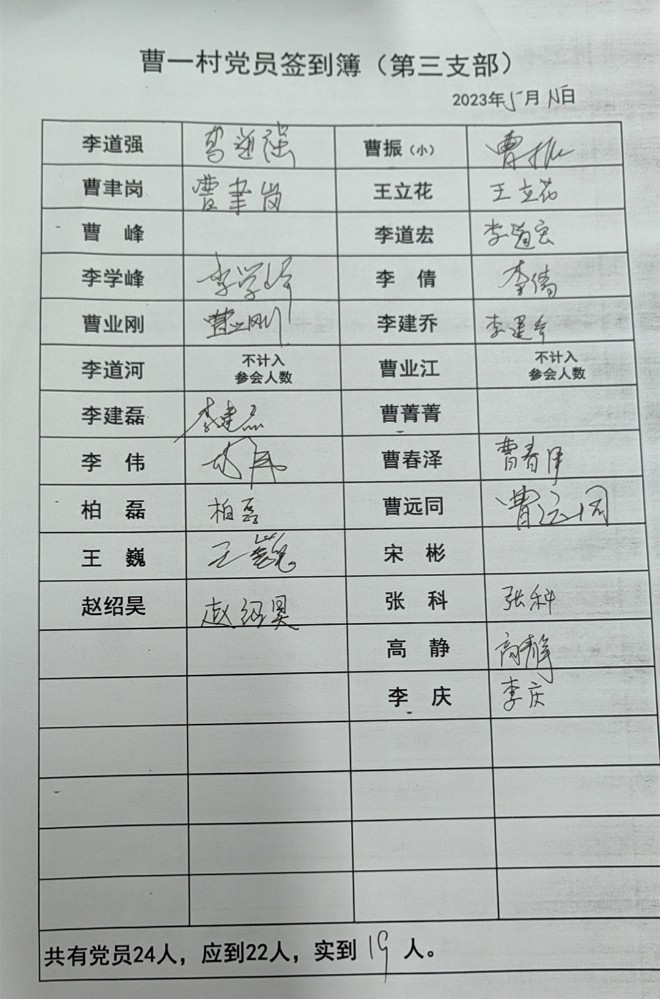 曹一村党员签到簿（第三支部）
2023年5月15日
李道强 李道强 曹振（小） 曹振
曹聿岗 曹聿岗 王立花 王立花
曹 峰 李道宏 李道宏
李学峰 李学峰 李 倩 李倩
曹业刚 曹业刚 李建乔 李建乔
李道河 不计入 曹业江 不计入
参会人数 参会人数
李建磊 李建磊 曹菁菁
李 伟 曹春泽 曹春泽
柏 磊 柏磊 曹远同 曹远同
王 巍 王巍 宋 彬
赵绍昊 赵绍昊 张 科 张科
高 静 高静
李 庆 李庆
共有党员24人，应到22人，实到 19 人。